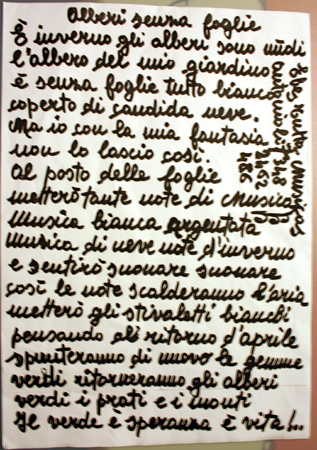 Alberi senza foglie
È inverno gli alberi sono nudi
l'albero del mio giardino
è senza foglie tutto bianco
coperto di candida neve.
Ma io con la mia fantasia
non lo lascio così.
al posto delle foglie
metterò tante note di Musica
musica bianca argentata
musica di neve note d'inverno
e sentirò suonare suonare
così le note scalderanno l'aria
metterò gli stivaletti bianchi
pensando al ritorno d'aprile
spunteranno di nuovo le gemme
verdi ritorneranno gli alberi
verdi i prati e i monti
Il verde è speranza è vita!...
486